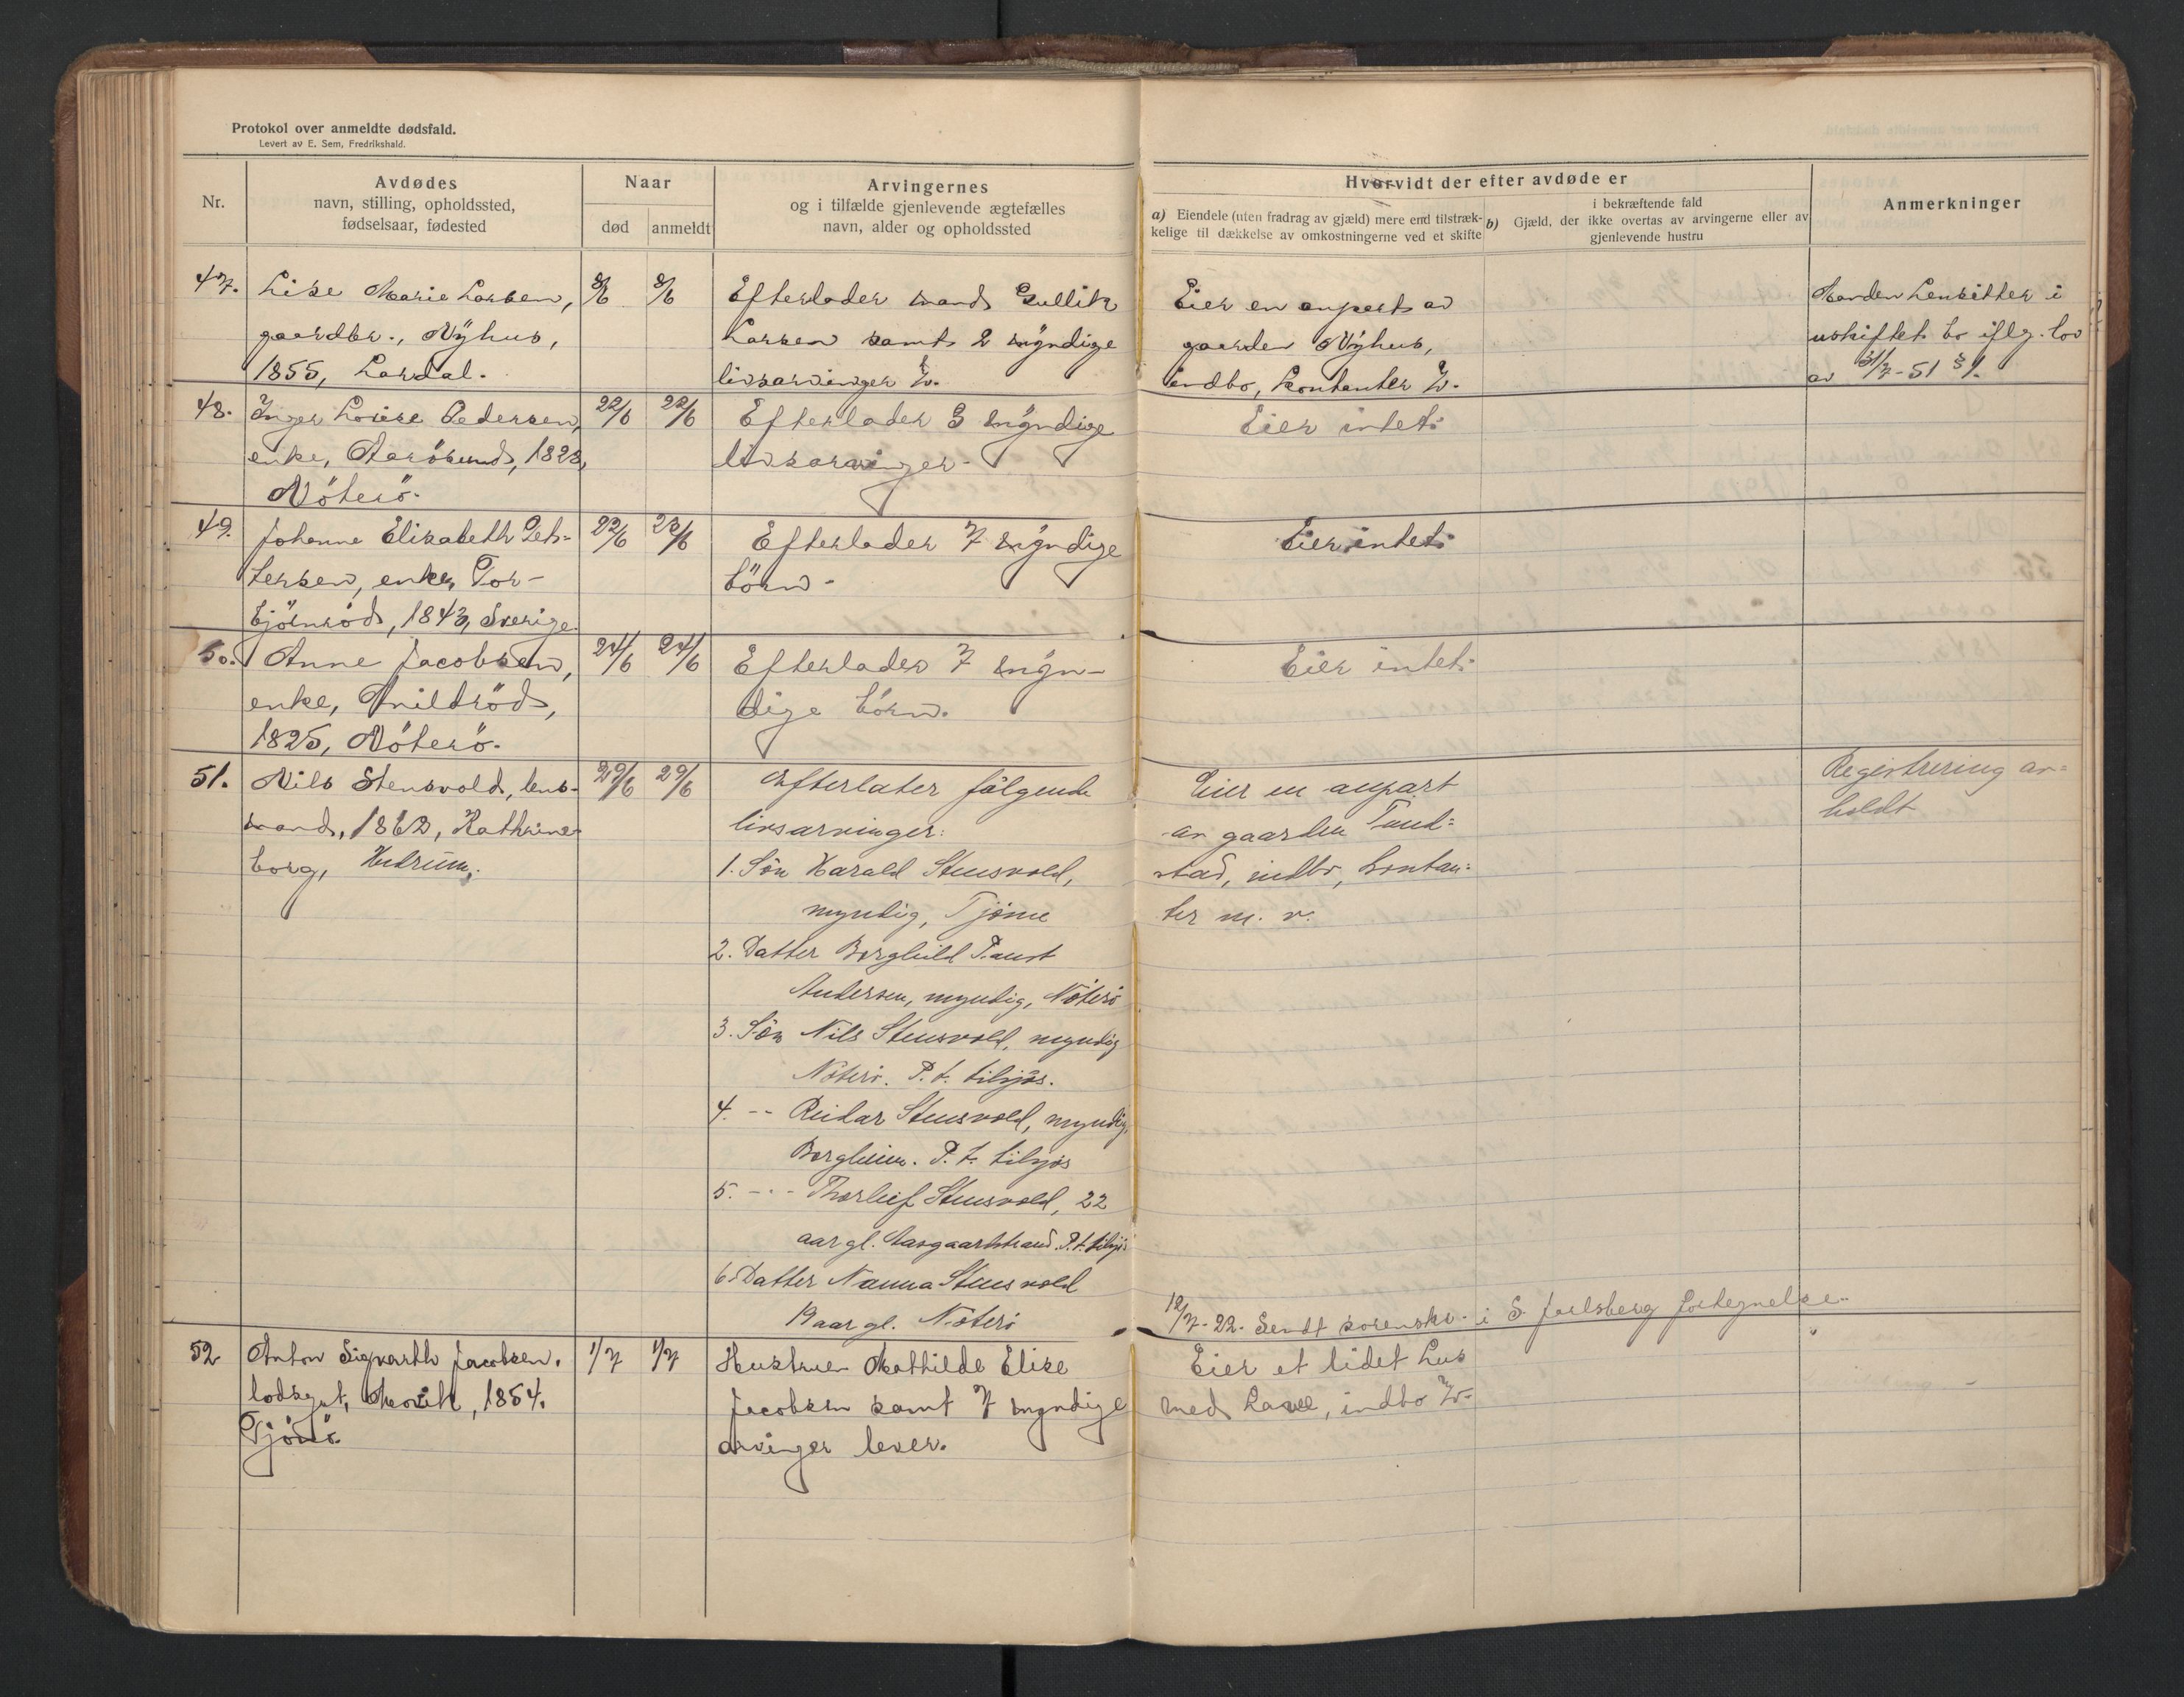 Protokol over anmeldte dødsfald.
Levert av E. Sem, Fredrikshald.
Nr.
Avdødes
navn, stilling, opholdssted,
fødselsaar, fødested
Naar
død
anmeldt
Arvingernes
og i tilfælde gjenlevende ægtefælles
navn, alder og opholdssted
Hvorvidt der efter avdøde er
a) Eiendele (uten fradrag av gjæld) mere end tilstræk-
kelige til dækkelse av omkostningerne ved et skifte
i bekræftende fald
b) Gjæld, der ikke overtas av arvingerne eller av
gjenlevende hustru
Anmerkninger
47.
Lise Marie Larsen,
gaardbr., Nÿhus,
1855, Lardal.
8/6
8/6
Efterlader mand Gullik
Larsen samt 2 mÿndige
livsarvinger
Eier en anpart av
gaarden Nÿhus,
indbo, kontanter
Manden hensitter i
uskiftet bo iflg. lov
av 31/7-51 § 1.
48.
Inger Lovise Pedersen,
enke, Aarösund, 1823,
Nöterö.
22/6
22/6
Efterlader 3 mÿndige
livsarvinger.
Eier intet.
49.
Johanne Elisabeth Pet-
tersen, enke, Tor-
björnröd, 1843, Sverige.
22/6
23/6
Efterlader 7 mÿndige
börn.
Eier intet.
50.
Anne Jacobsen,
enke, Smildröd,
1825, Nöterö.
24/6
24/6
Efterlader 7 mÿn-
dige börn.
Eier intet.
51.
Nils Stensvold, lens-
mand, 1862, Kathrine-
borg, Hedrum.
29/6
29/6
Efterlater fölgende
livsarvinger:
1. Sön Harald Stensvold,
myndig, Tjöme
2. Datter Borghild Faust
Andersen, myndig, Nöterö
3. Sön Nils Stensvold, myndig
Nöterö. P.t. tilsjös.
4. -- Reidar Stensvold, myndig,
Borgheim. P.t. tilsjös
5. -- Thorleif Stensvold, 22
aar gl. Aasgaardstrand. P.t. tilsjös
6. Datter Nanna Stensvold
19 aar gl. Nöterö
Eier en anpart
av gaarden Tand-
stad, indbo, kontan-
ter m. v.
Registrering av-
holdt
12/7-22. Sendt sorenskr. i S. Jarlsberg fortegnelse.
52
Anton Sigvarth Jacobsen,
lodsgut, 1854.
Tjömö.
1/7
1/7
Hustruen Mathilde Elise
Jacobsen samt 7 myndige
arvinger lever.
Eier et lidet hus
med have, indbo